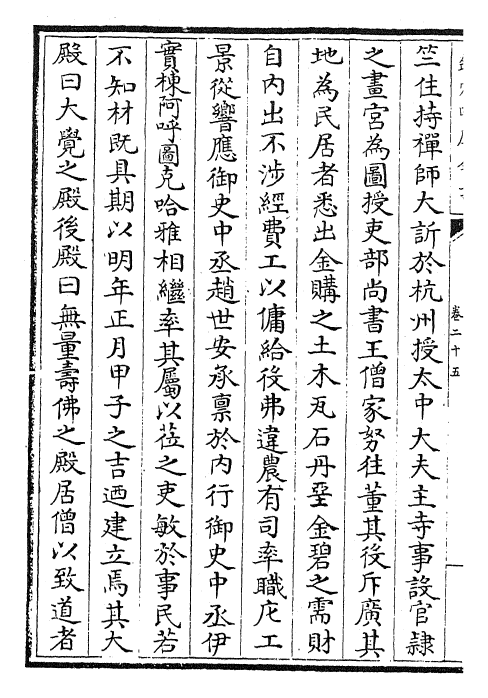 卷二十五
竺住持禪師大訢於杭州授太中大夫主寺事設官隷
之畫宮為圖授吏部尚書王僧家努往董其役斥廣其
地為民居者悉出金購之土木瓦石丹堊金碧之需財
自内出不涉經費工以傭給役弗違農有司率職庀工
景從響應御史中丞趙世安承禀於内行御史中丞伊
實棟阿呼圖克哈雅相繼率其屬以莅之吏敏於事民若
不知材既具期以明年正月甲子之吉迺建立焉其大
殿曰大覺之殿後殿曰無量壽佛之殿居僧以致道者